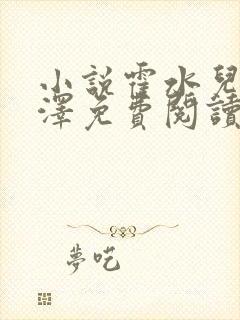 小說霍水兒
澤免費閱讀
夢吃